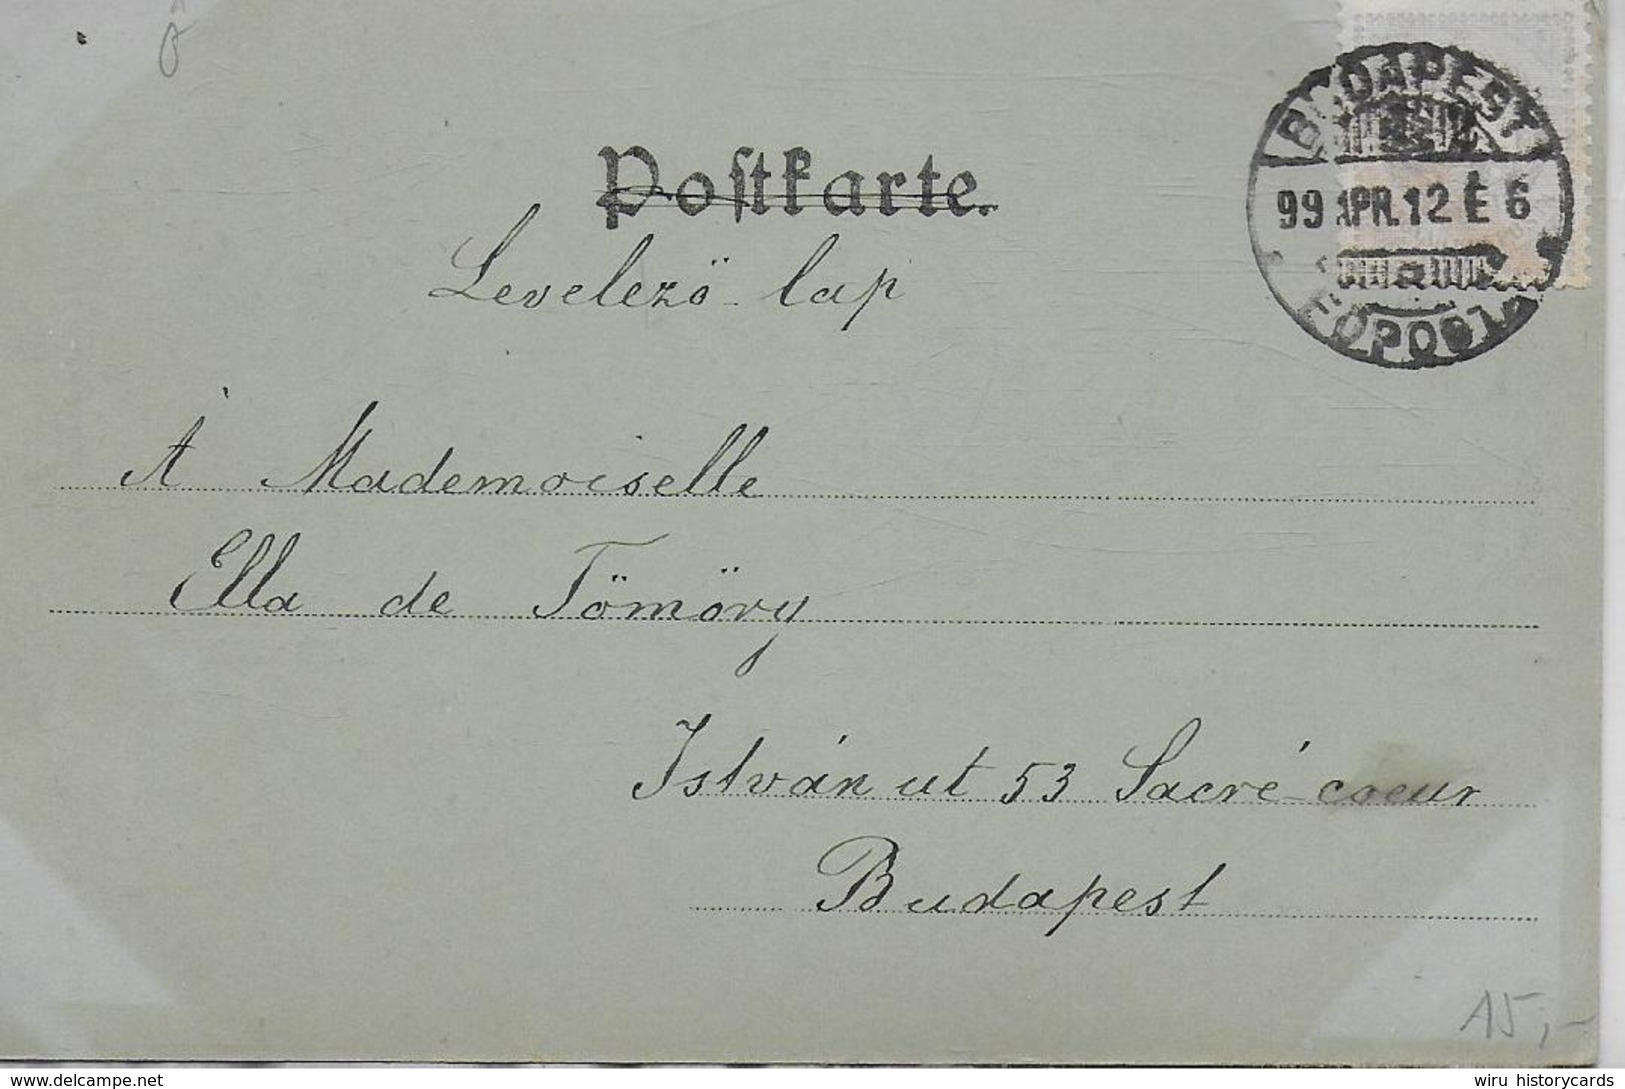 Postkarte.
Levelező-lap
BUDAPEST
99 APR. 12 É 6
FŐPOSTA
À Mademoiselle
Ella de Tömöry
István út 53 Sacré-coeur
Budapest
15,-
www.delcampe.net
wiru historycards